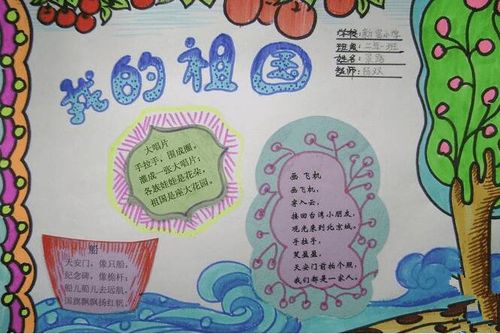 我的祖国
学校：
班级：二年一班
姓名：
教师：
大唱片
手拉手，围成圈，
灌成一张大唱片；
各族娃娃是花朵，
祖国是座大花园。
画飞机
画飞机，
穿入云，
接回台湾小朋友，
观光来到北京城。
手拉手，
笑盈盈，
天安门前拍个照，
我们都是一家人。
船
天安门，像只船，
纪念碑，像桅杆，
船儿船儿去远航，
国旗飘飘扬红帆。